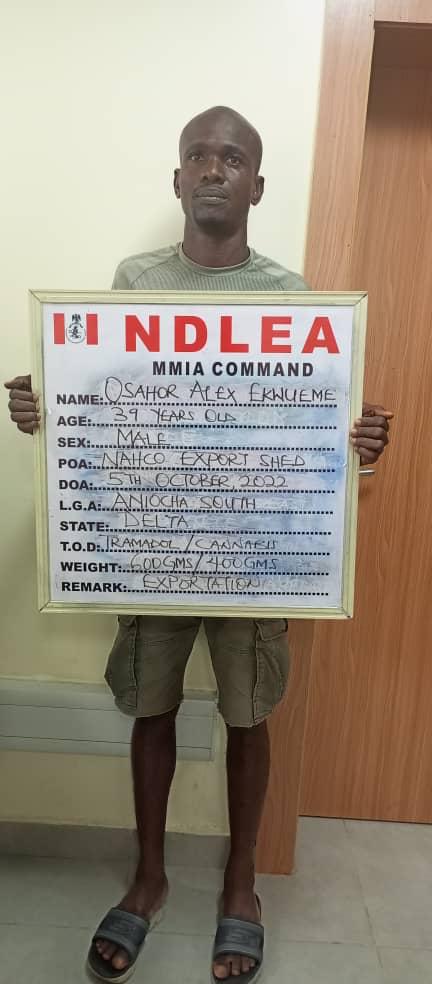 NDLEA
MMIA COMMAND
NAME: OSAHOR ALEX EKWUEME
AGE: 39 YEARS OLD
SEX: MALE
POA: NAHCO EXPORT SHED
DOA: 5TH OCTOBER, 2022
L.G.A: ANIOCHA SOUTH
STATE: DELTA
T.O.D: TRAMADOL/CANNABIS
WEIGHT: 600GMS/400GMS
REMARK: EXPORTATION